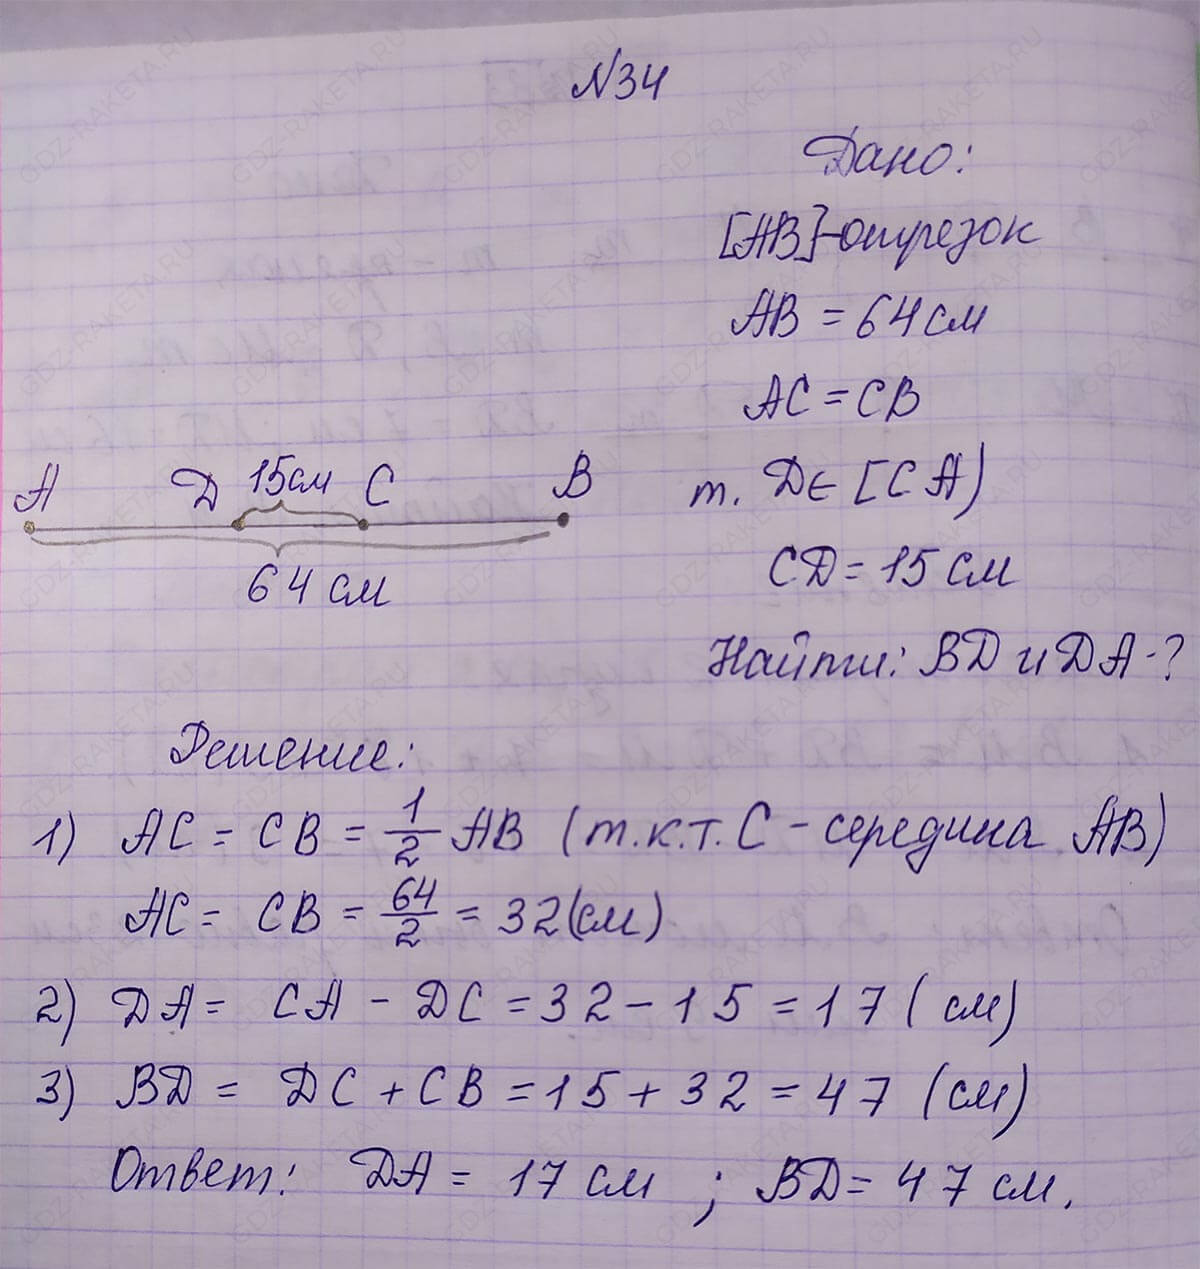 N34
Дано:
[AB]-отрезок
AB = 64 см
AC = CB
т. D∈ [CA)
CD = 15 см
Найти: BD и DA-?
A D 15см C B
64 см
Решение:
1) AC = CB = 1/2 AB (т.к.т. C - середина AB)
AC = CB = 64/2 = 32 (см)
2) DA = CA - DC = 32 - 15 = 17 (см)
3) BD = DC + CB = 15 + 32 = 47 (см)
Ответ: DA = 17 см ; BD = 47 см.
GDZ-RAKETA.RU